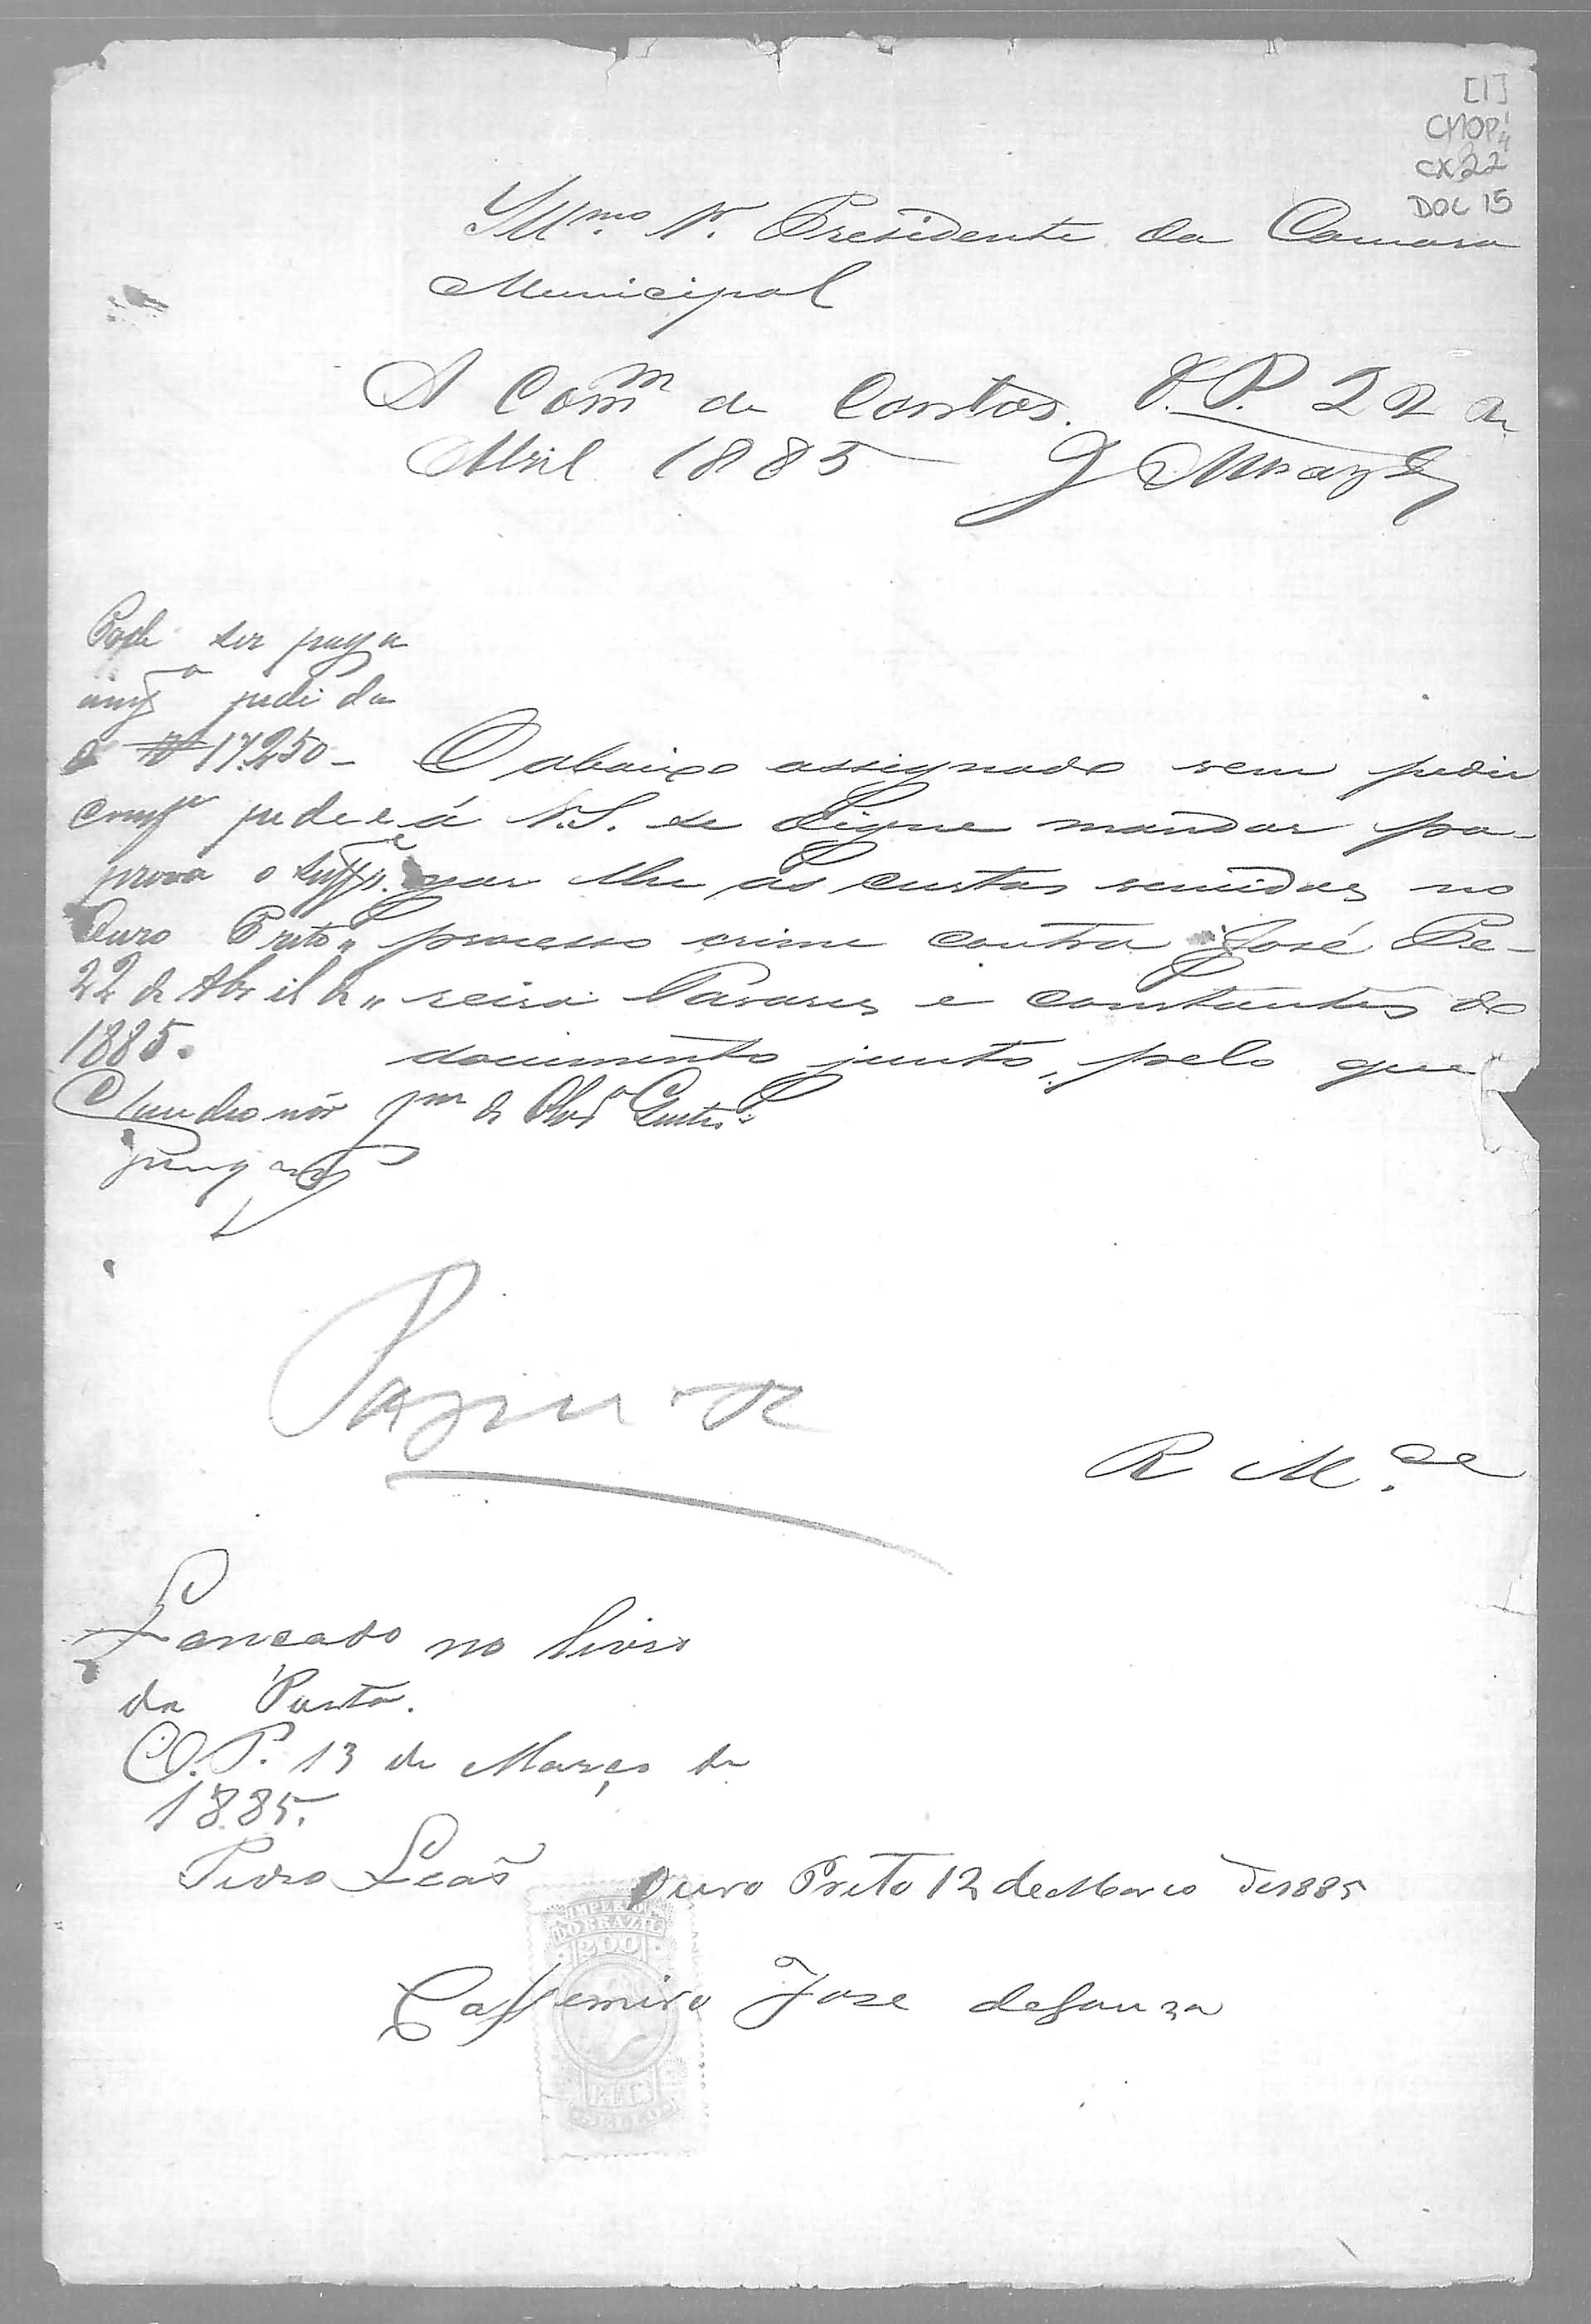 [1]
CMOP
CX 22
DOC 15
Illmo. Sr. Presidente da Camara
Municipal
A Comm de Contas. O.P. 22 de
Abril 1885
Pode ser paga
pedida
17.250
O abaixo assignado vem pedir
á V.S. se Digne mandar pa-
gar lhe as custas vencidas no
processo crime contra José Pe-
reira Tavares e constantes do
documento junto, pelo que
prova o Supp.e
Ouro Preto
22 de Abril de
1885.
R M.ce
Lancado no livro
da Porta.
O.P. 13 de Março de
1885.
Pedro Leão
Ouro Preto 12 de Marco de 1885
IMPERIO
DO BRAZIL
200
Cassemiro Jose de Souza
REIS
SELLO